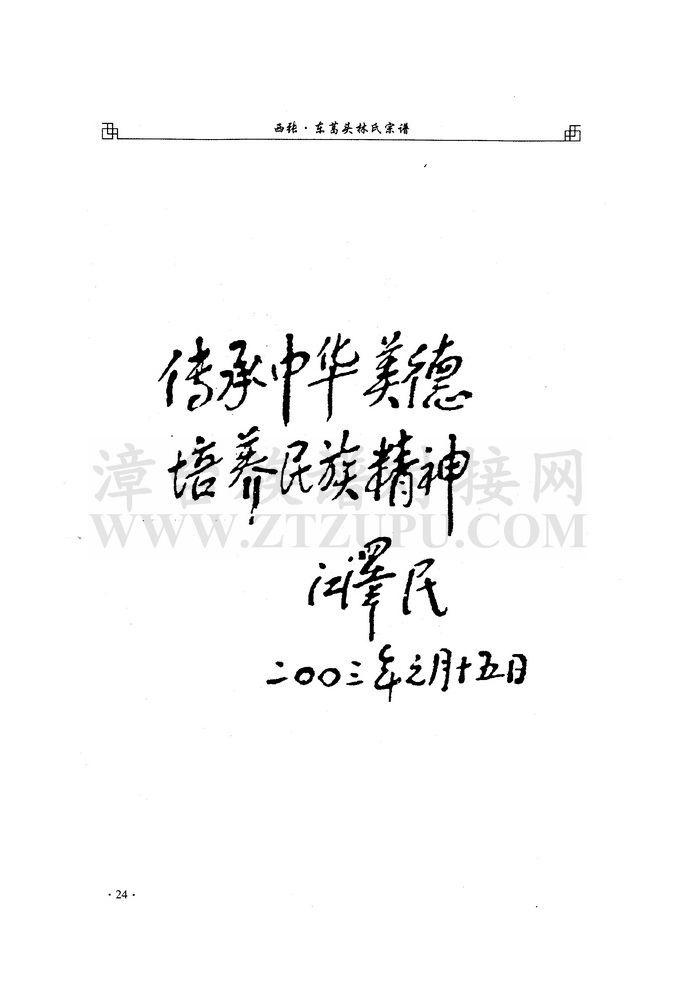 西张·东葛头林氏宗谱
传承中华美德
培养民族精神
漳台族谱对接网
WWW.ZTZUPU.COM
江泽民
二〇〇三年元月十五日
·24·